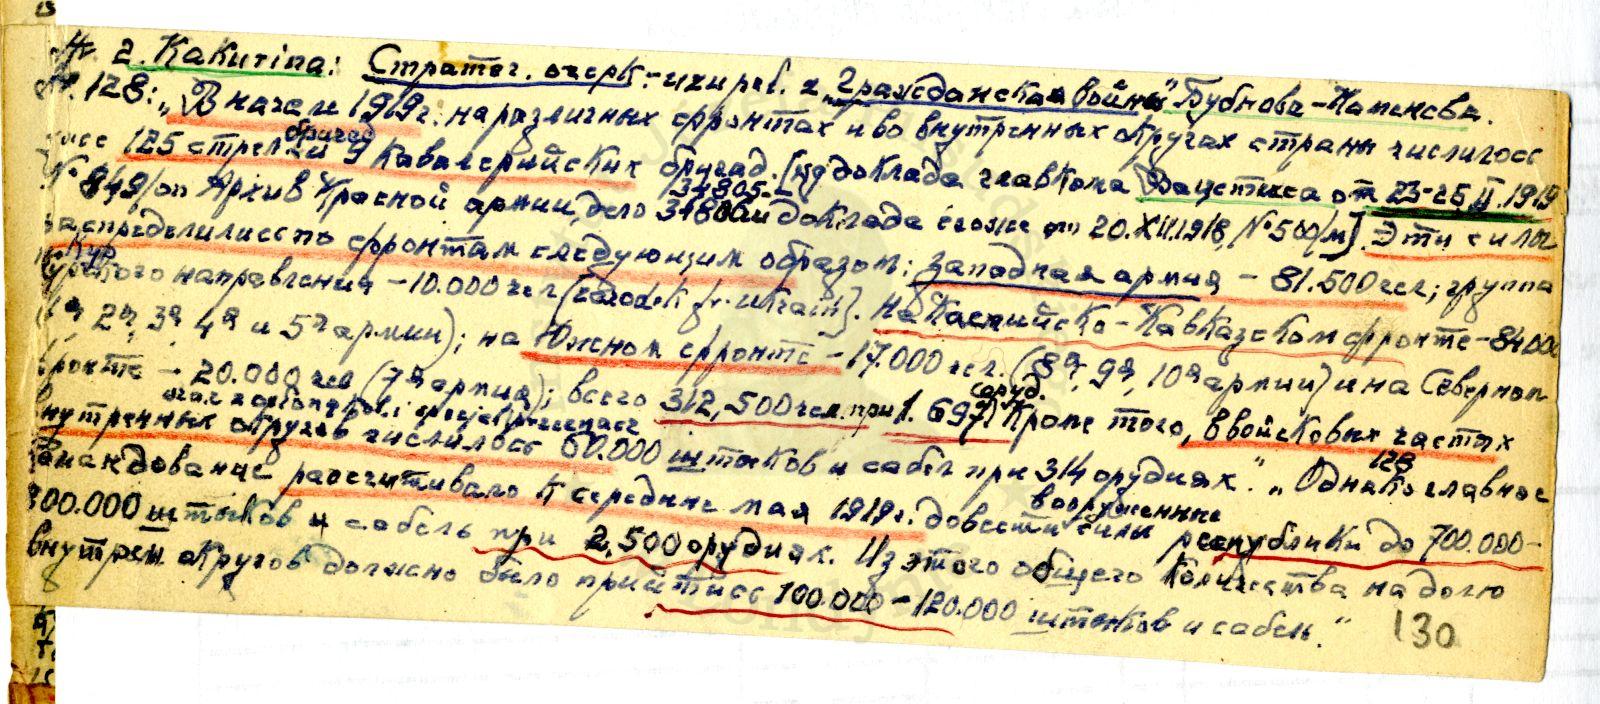 г. Какurina: Стратег. очерк - "Гражданская война" Бубнова-Каменева.
128: "В начале 1919 г. на различных фронтах и во внутренных округах страны числилось
125 стрелк. бригад и 9 кавалерийских бригад. [из доклада главкома Вацетиса от 23-25.II.1919
№ 849/оп Архив Красной армии, дело 34805 и доклада его же от 20.XII.1918, № 500/м]. Эти силы
распределились по фронтам следующим образом: западная армия - 81.500 чел; группа
Кур
Курского направления - 10.000 чел На Каспийско-Кавказском фронте - 84000
2я, 3я 4я и 5я армии); на Южном фронте - 17.000 чел. (8я, 9я, 10я армии) и на Северном
фронте - 20.000 чел (7я армия); всего 312,500 чел. при 1.697 оруд. Кроме того, в войсковых частях
внутренных округов числилось 60.000 штыков и сабель при 314 орудиях." "Однако главное 128
командование рассчитывало к середине мая 1919 г. довести вооруженные силы республики до 700.000-
800.000 штыков и сабель при 2,500 орудиях. Из этого общего количества на долю
внутрен округов должно было прийтись 100.000 - 120.000 штыков и сабель."
130